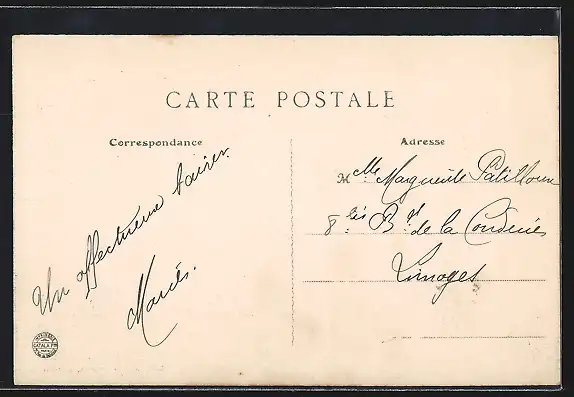 CARTE POSTALE
Correspondance
Un affectueux baiser
Maria.
Adresse
M elle Marguerite Patilloux
8 bis Bd de la Corderie
Limoges